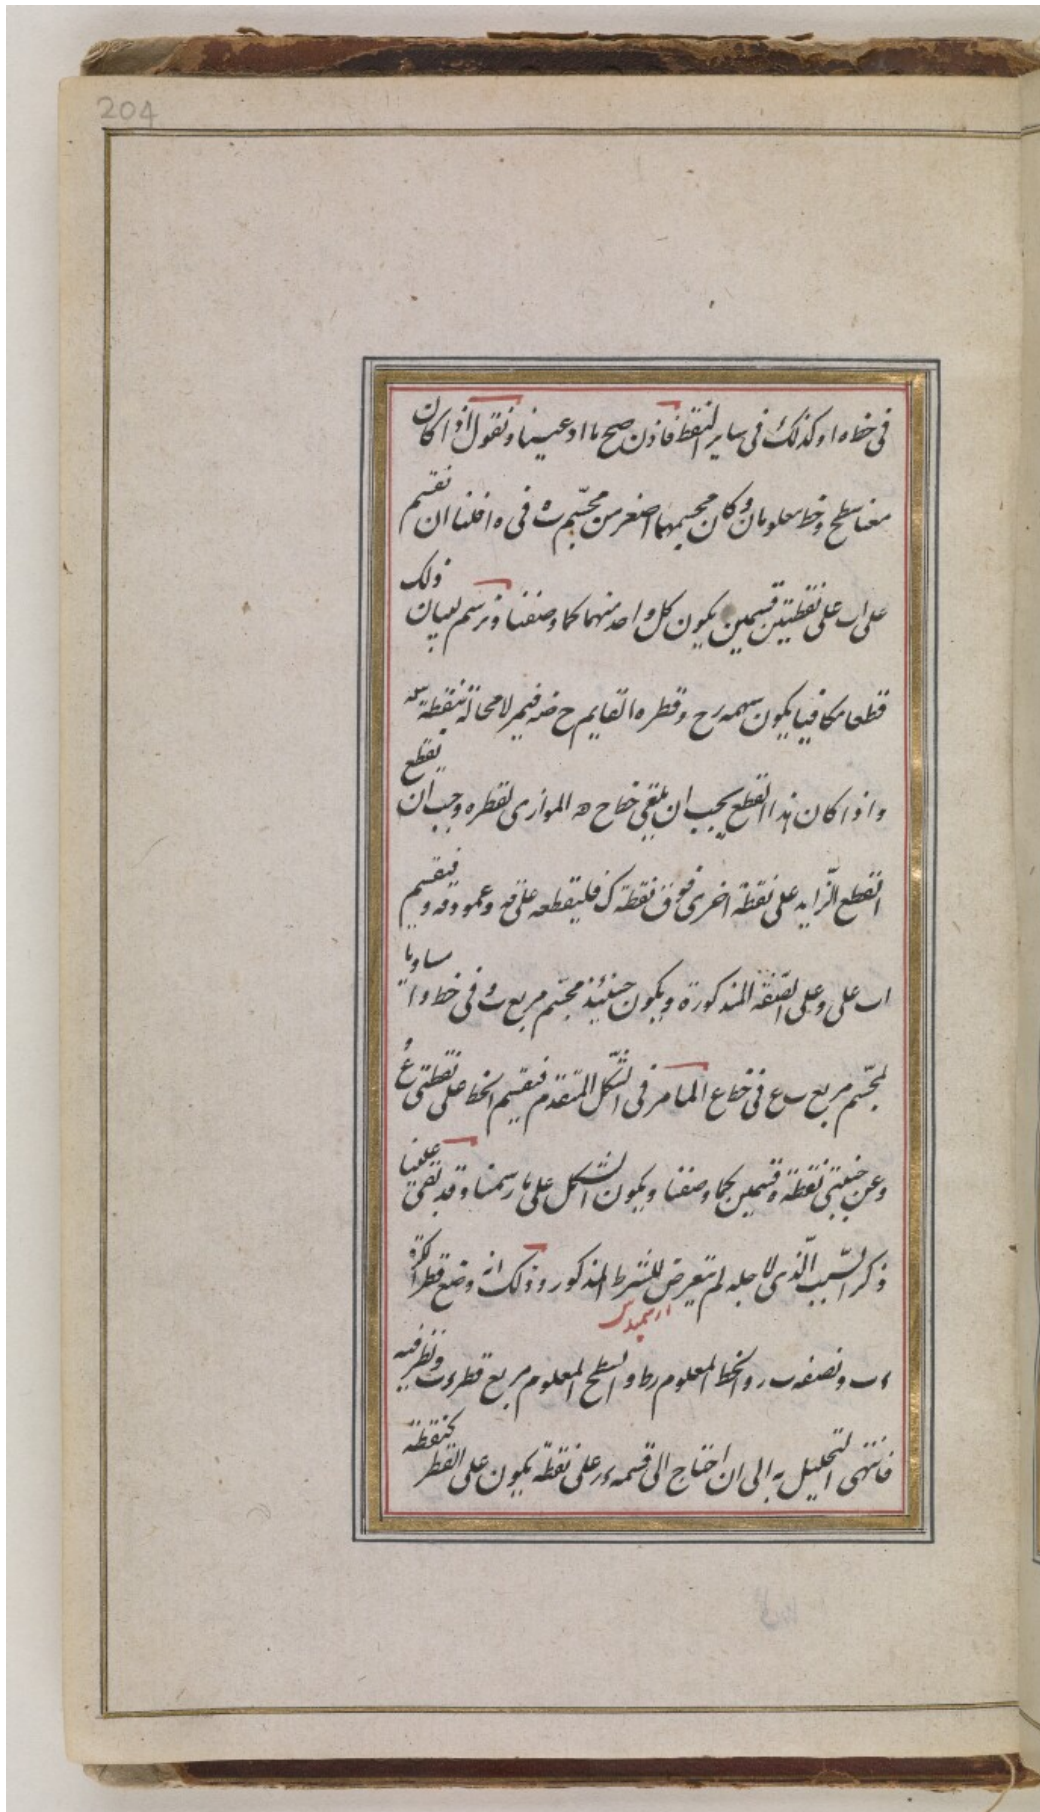 204
فى خط ه ا وكذلك فى ساير النقط فاذن صح ما ادعينا ونقول اذا كان
معنا سطح وخط معلومان وكان مجسمهما اصغر من مجسم ب ه فى ه ا فلنا ان نقسم
على ا ب على نقطتين قسمين يكون كل واحد منهما كما وصفنا ونرسم لبيان ذلك
قطعا مكافيا يكون سهمه ح وقطره القايم ح فيمر لا محالة بنقطة
واذا كان هذا القطع يجب ان يلقى خط ح الموازى لقطره وجب ان يقطع
القطع الزايد على نقطة اخرى فوق نقطة ك فليقطعه على ف وعمود ف و فيقسم
ا ب على و على الصفة المذكورة ويكون حينئذ مجسم مربع ب و فى خط و ا مساويا
لمجسم مربع ب ع فى خط ع ا لما مر فى الشكل المتقدم فيقسم الخط على نقطتى ع و
وعن جنبتى نقطة ه قسمين كما وصفنا ويكون الشكل على ما رسمنا وقد بقى علينا
ذكر السبب الذى لاجله لم يتعرض للشرط المذكور وذلك انه وضع قطر الكرة
ارشميدس
ء ب ونصفه ب ر والخط المعلوم ر ط والسطح المعلوم مربع قطر ء ب ونظر فيه
فانتهى التحليل به الى ان احتاج الى قسمة ء ر على نقطة يكون على القطر كنقطة